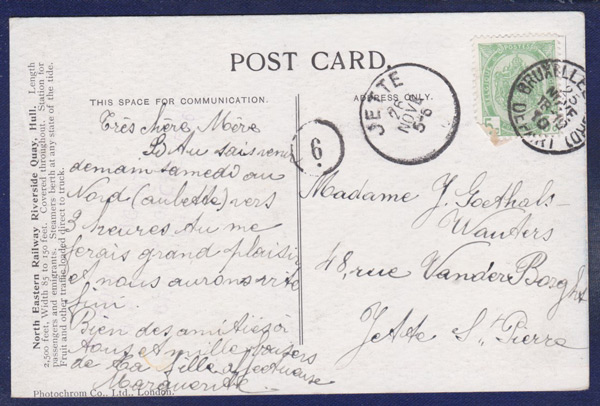 POST CARD.
THIS SPACE FOR COMMUNICATION.
ADDRESS ONLY.
North Eastern Railway Riverside Quay, Hull. Length
2,500 feet, Width 85 to 150 feet. Covered throughout. Station for
passengers and emigrants. Steamers berth at any state of the tide.
Fruit and other traffic loaded direct to truck.
Très chère Mère
demain samedi au
Nord (aubette) vers
3 heures tu me
ferais grand plaisir
et nous aurons vite
fini.
Bien des amitiés à
tous et mille baisers
de ta fille affectueuse
Marguerite
Photochrom Co., Ltd., London.
6
JETTE
26
NOV
5-6
BRUXELLES
DEPART
Madame J. Goethals-
Wauters
48, rue Vander Borght
Jette St. Pierre